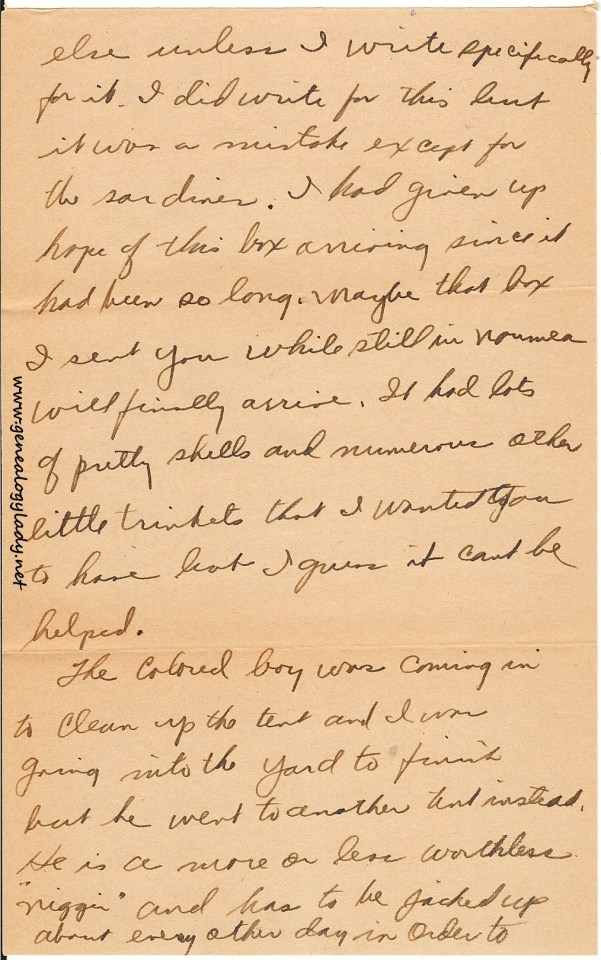 else unless I write specifically
for it. I did write for this but
it was a mistake except for
the sardines. I had given up
hope of this box arriving since it
had been so long. Maybe that box
I sent you while still in Noumea
will finally arrive. It had lots
of pretty shells and numerous other
little trinkets that I wanted you
to have but I guess it cant be
helped.
The Colored boy was coming in
to clean up the tent and I was
going into the yard to finish
but he went to another tent instead.
He is a more or less worthless
"niggin" and has to be jacked up
about every other day in order to
www.genealogylady.net